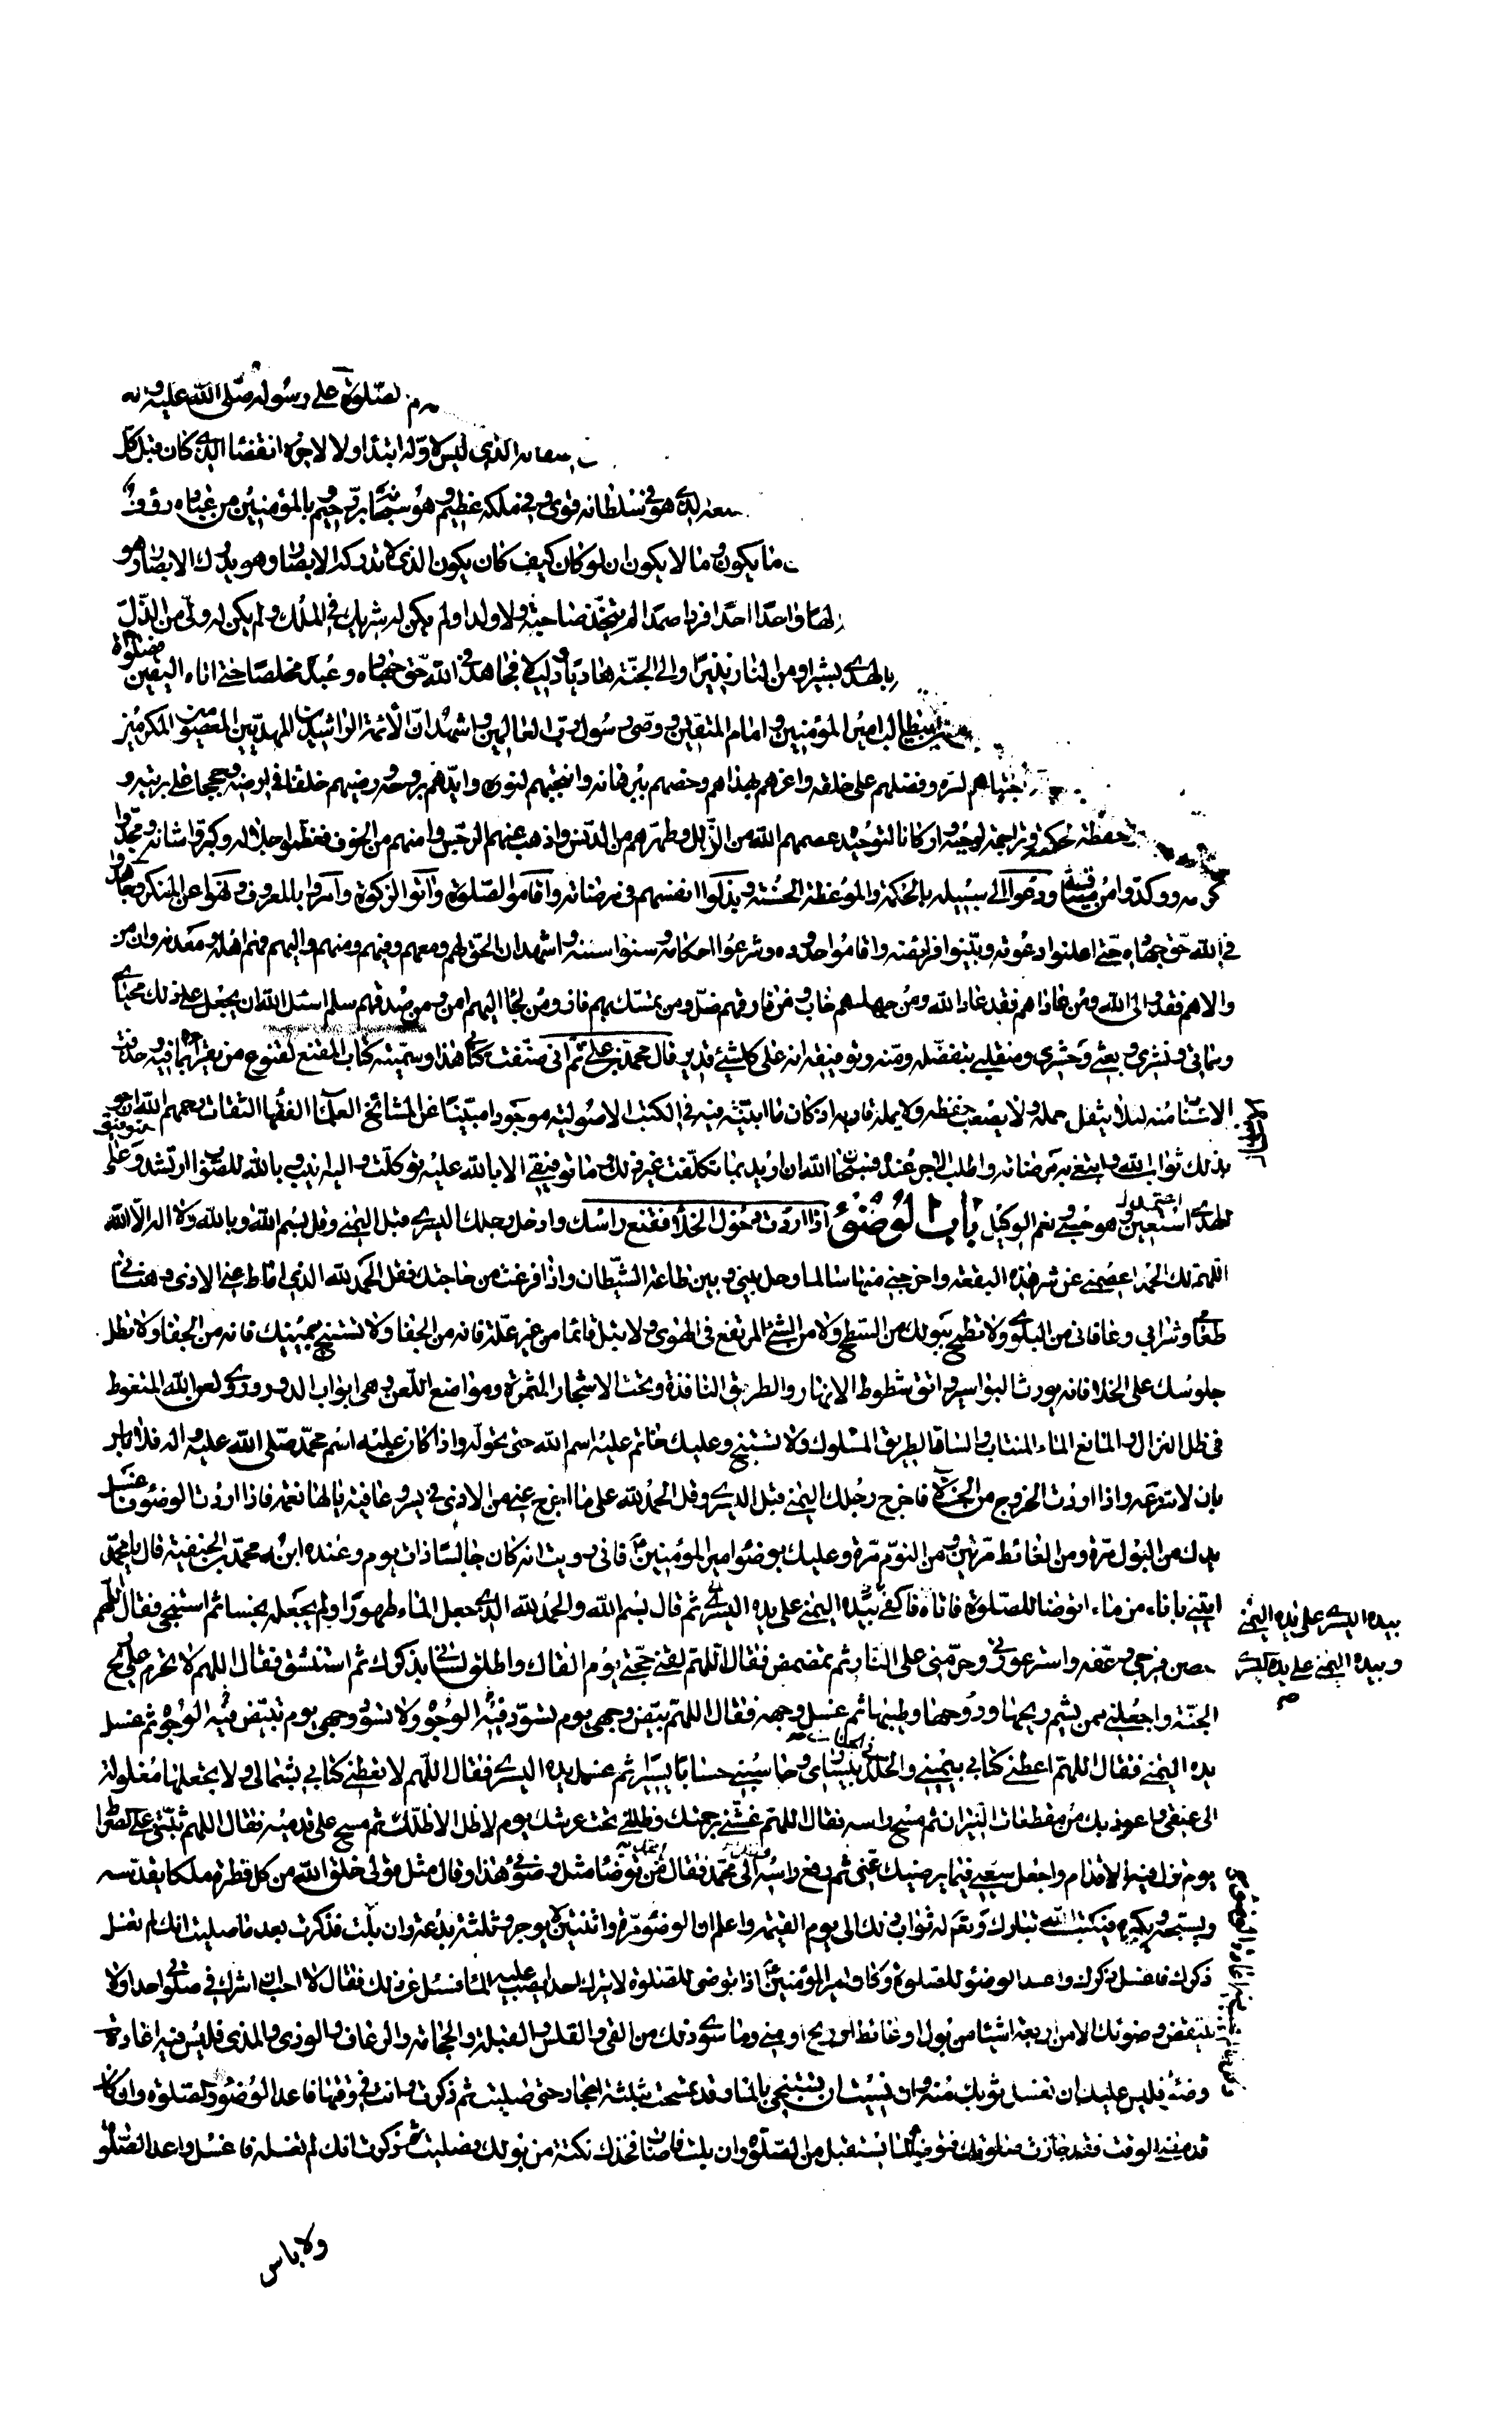 الصلوة على رسوله صلى الله عليه وآله
الذي ليس لاوله ابتداء ولا لاخره انقضاء الذي كان قبل كل
الذي هو في سلطانه قوي وفي ملكه عظيم وهو سبحانه بر رحيم بالمؤمنين من عباده رؤف
ما يكون وما لا يكون ان لو كان كيف كان يكون الذي لا تدركه الابصار وهو يدرك الابصار وهو
الها واحدا احدا فردا صمدا لم يتخذ صاحبة ولا ولدا ولم يكن له شريك في الملك ولم يكن له ولي من الذل
بالهدى بشيرا ومن النار نذيرا والى الجنة هاديا ودليلا فجاهد في الله حق جهاده وعبده مخلصا حتى اتاه اليقين فصلوة
بن ابيطالب امير المؤمنين وامام المتقين ووصى رسول رب العالمين واشهد ان الأئمة الراشدين المهديين المعصومين المكرمين
اجتباهم لسره وفضلهم على خلقه واعزهم بهداهم وخصهم ببرهانه وانتجبهم لنوره وايدهم بروحه ورضيهم خلفا في ارضه وحججا على بريته و
حفظة لحكمته وتراجمة لوحيه واركانا لتوحيده عصمهم الله من الزلل وطهرهم من الدنس واذهب عنهم الرجس وامنهم من الخوف فعظموا جلاله وكبروا شانه ومجدوا
كرمه ووكدوا ميثاقه ودعوا الى سبيله بالحكمة والموعظة الحسنة وبذلوا انفسهم في مرضاته واقاموا الصلوة وآتوا الزكوة وآمروا بالمعروف ونهوا عن المنكر وجاهدوا
في الله حق جهاده حتى اعلنوا دعوته وبينوا فرايضه واقاموا حدوده وشرعوا احكامه وسنوا سننه واشهد ان الحق لهم ومعهم وفيهم ومنهم واليهم فهم اهله ومعدنه وان من
والاهم فقد والى الله ومن عاداهم فقد عاد الله ومن جهلهم خاب ومن فارقهم ضل ومن تمسك بهم فاز ومن لجأ اليهم امن ومن صدقهم سلم اسئل الله ان يجعل على ذلك محياي
ومماتي ونشري وبعثي وحشري ومنقلبي بتفضله ومنه وتوفيقه انه على كل شيء قدير قال محمد بن علي ثم اني صنفت كتابي هذا وسميته كتاب المقنع لقنوع من يقرأه بما فيه وحذفت
الاسناد منه لئلا يثقل حمله ولا يصعب حفظه ولا يمله قاريه اذ كان ما ابينه فيه في الكتب الاصولية موجودا مبينا عن المشائخ العلماء الفقهاء الثقات رحمهم الله ارجو
بذلك ثواب الله وابتغي به مرضاته واطلب الاجر عنده فسبحان الله ان اريد بما تكلفت غير ذلك وما توفيقي الا بالله عليه توكلت واليه انيب وبالله للصواب ارتشد وعلى
الهدى استعين وهو حسبي ونعم الوكيل باب الوضوء اذا اردت دخول الخلاء فقنع راسك وادخل رجلك اليسرى قبل اليمنى وقل بسم الله وبالله ولا اله الا الله
اللهم لك الحمد اعصمني عن شر هذه البقعة واخرجني منها سالما وحل بيني وبين طاعة الشيطان واذا فرغت من حاجتك فقل الحمد لله الذي اماط عني الاذى وهنأني
طعامي وشرابي وعافاني من البلوى ولا تطمح ببولك من السطح ولا من الشيء المرتفع في الهوى ولا تبل قائما من غير علة فانه من الجفا ولا تستنج بيمينك فانه من الجفا ولا تطل
جلوسك على الخلاء فانه يورث البواسير واتق شطوط الانهار والطريق النافذة وتحت الاشجار المثمرة ومواضع اللعن وهي ابواب الدور وروي لعن الله المتغوط
في ظل النزال والمانع الماء المنتاب والساد الطريق المسلوك ولا تستنج وعليك خاتم عليه اسم الله حتى تحوله واذا كان عليه اسم محمد صلى الله عليه وآله فلا باس
بان لا تنزعه واذا اردت الخروج من الخلاء فاخرج رجلك اليمنى قبل اليسرى وقل الحمد لله على ما اخرج عني من الاذى في يسر وعافية يالها نعمة فاذا اردت الوضوء فاغسل
يدك من البول مرة ومن الغائط مرتين ومن النوم مرة وعليك بوضوء امير المؤمنين فاني رويت انه كان جالسا ذات يوم وعنده ابنه محمد بن الحنفية قال يا محمد
ايتني باناء من ماء اتوضا للصلوة فاتاه فاكفى بيده اليمنى على يده اليسرى ثم قال بسم الله والحمد لله الذي جعل الماء طهورا ولم يجعله نجسا ثم استنجى فقال اللهم
بيده اليسرى على يده اليمنى
وبيده اليمنى على يده اليسرى
حصن فرجي وعفه واستر عورتي وحرمني على النار ثم تمضمض فقال اللهم لقني حجتي يوم القاك واطلق لساني بذكرك ثم استنشق فقال اللهم لا تحرم علي ريح
الجنة واجعلني ممن يشم ريحها وروحها وطيبها ثم غسل وجهه فقال اللهم بيض وجهي يوم تسود فيه الوجوه ولا تسود وجهي يوم تبيض فيه الوجوه ثم غسل
يده اليمنى فقال اللهم اعطني كتابي بيميني والخلد بيساري وحاسبني حسابا يسيرا ثم غسل يده اليسرى فقال اللهم لا تعطني كتابي بشمالي ولا تجعلها مغلولة
الى عنقي واعوذ بك من مقطعات النيران ثم مسح راسه فقال اللهم غشني برحمتك وظللني تحت عرشك يوم لا ظل الا ظلك ثم مسح على قدميه فقال اللهم ثبتني على الصراط
يوم تزل فيه الاقدام واجعل سعيي فيما يرضيك عني ثم رفع راسه الى محمد فقال من توضأ مثل وضوئي هذا وقال مثل قولي خلق الله من كل قطرة ملكا يقدسه
ويسبحه ويكبره فيكتب الله تبارك وتعالى له ثواب ذلك الى يوم القيمة واعلم ان الوضوء مرة واثنتين لا يوجر وثلثة بدعة وان بلت فذكرت بعد ما صليت انك لم تغسل
ذكرك فاغسل ذكرك واعد الوضوء للصلوة وكان امير المؤمنين اذا توضى للصلوة لا يترك احدا يصب عليه الماء فسئل عن ذلك فقال لا احب ان اشرك في صلوتي احدا ولا
ينقض وضوئك الا من اربعة اشياء من بول او غائط او ريح او مني وما سوى ذلك من القي والقلس والقبلة والحجامة والرعاف والوذي والمذي فليس فيه اعادة
وضوء فليس عليك ان تغسل ثوبك منه وان نسيت ان تستنجي بالماء وقد تمسحت بثلثة احجار حتى صليت ثم ذكرت وانت في وقتها فاعد الوضوء والصلوة وان كان
قد مضى الوقت فقد جازت صلوتك فتوضأ لما تستقبل من الصلوة وان بلت فاصاب فخذك نكتة من بولك فصليت ثم ذكرت انك لم تغسله فاغسل واعد الصلوة
ولا باس